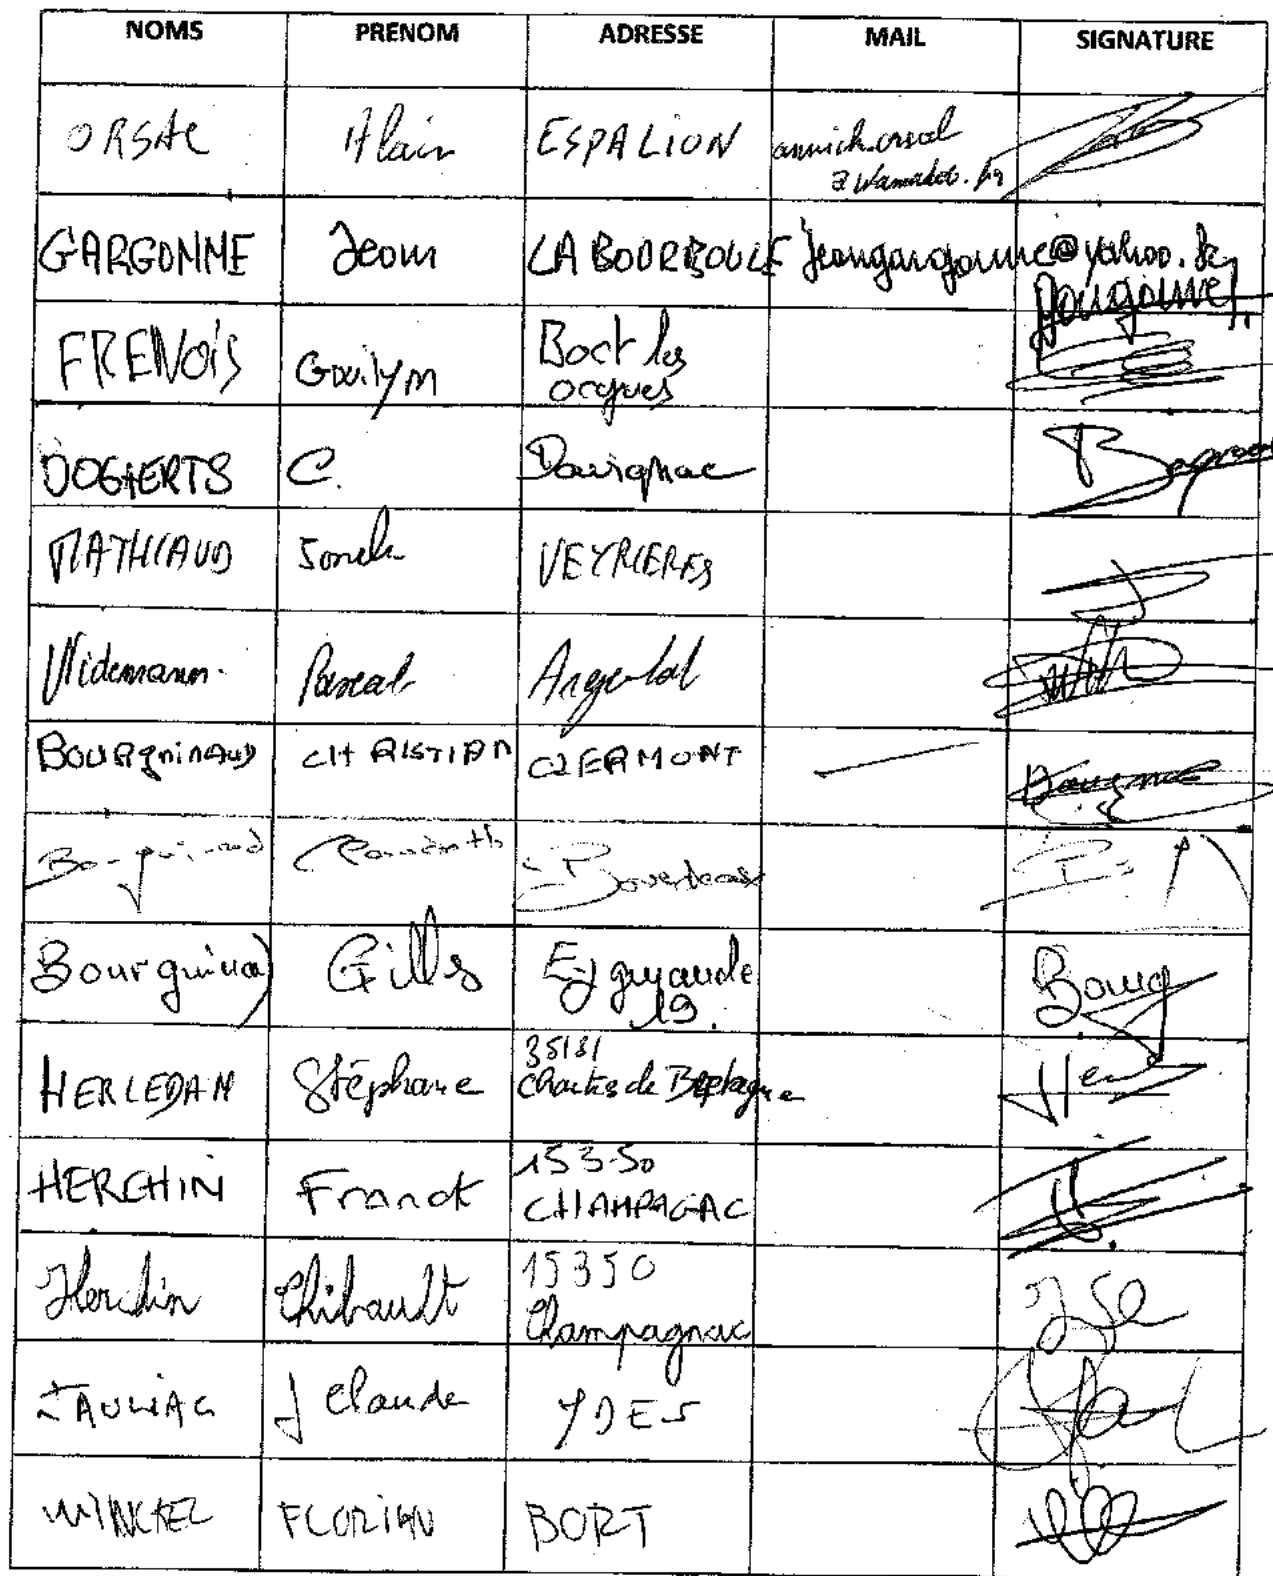 NOMS PRENOM ADRESSE MAIL SIGNATURE
ORSAL Alain ESPALION annick.orsal
@wanadoo.fr
GARGONNE Jean LA BOURBOULE jeangargonne@yahoo.fr
Gargonne
FRENOIS Gwilym Bort les
orgues
BOGAERTS C. Davignac
MATHIAUD VEYRIERES
Widemann Pascal Argentat
BOURGUINAUD CHRISTIAN CLERMONT
Bordeaux
Bourguinaud Gilles Eygurande
19.
Bourg
HERLEDAN Stéphane 35131
Chartes de Bretagne
HERCHIN Franck 15350
CHAMPAGNAC
Herchin Thibault 15350
Champagnac
JAULIAC J Claude YDES
WINCKEL FLORIAN BORT